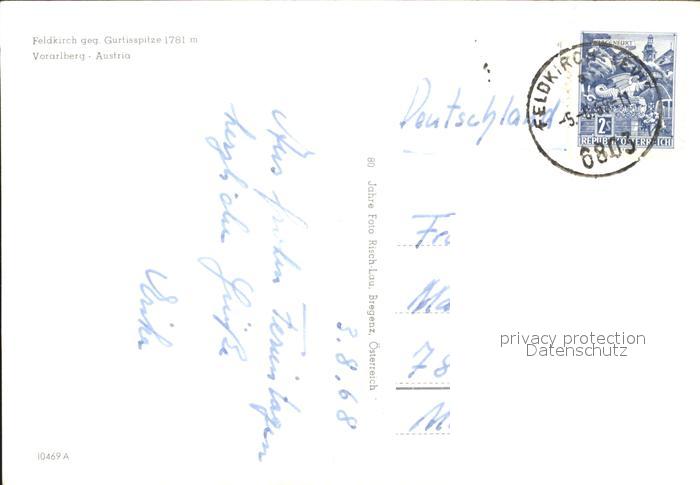 Feldkirch geg. Gurtisspitze 1781 m
Vorarlberg - Austria
Aus frohen Ferientagen
herzliche Grüße
3.8.68
80 Jahre Foto Risch-Lau, Bregenz, Österreich
Deutschland
Fr
Ma
78
M
KLAGENFURT
2 S
REPUBLIK ÖSTERREICH
FELDKIRCH
6803
privacy protection
Datenschutz
10469 A